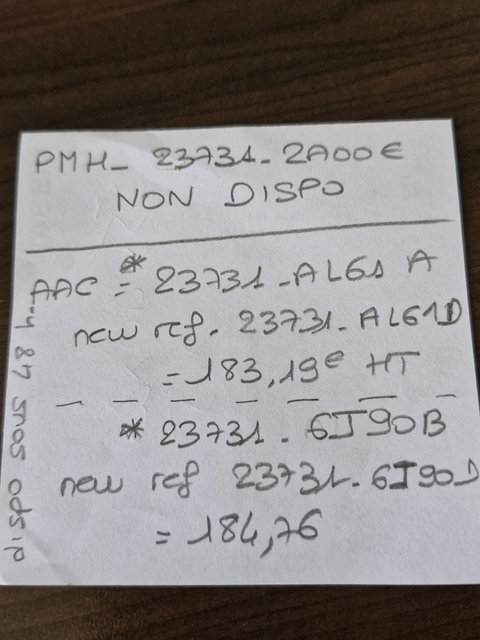 PMH_ 23731-2A00€
NON DISPO
AAC = * 23731-AL61 A
new ref. 23731-AL61D
=183,19€ HT
* 23731-6J90B
new ref 23731-6J90D
=184,76
dispo sous 48